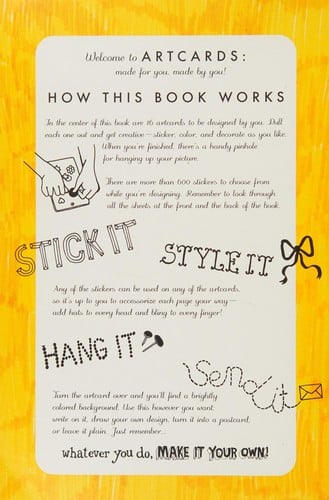 Welcome to ARTCARDS:
made for you, made by you!
HOW THIS BOOK WORKS
In the center of this book are 16 artcards to be designed by you. Pull
each one out and get creative—sticker, color, and decorate as you like.
When you're finished, there's a handy pinhole
for hanging up your picture.
There are more than 600 stickers to choose from
while you're designing. Remember to look through
all the sheets at the front and the back of the book.
STICK IT
STYLE IT
Any of the stickers can be used on any of the artcards,
so it's up to you to accessorize each page your way—
add hats to every head and bling to every finger!
HANG IT
Send it
Turn the artcard over and you'll find a brightly
colored background. Use this however you want:
write on it, draw your own design, turn it into a postcard,
or leave it plain. Just remember...
whatever you do, MAKE IT YOUR OWN!